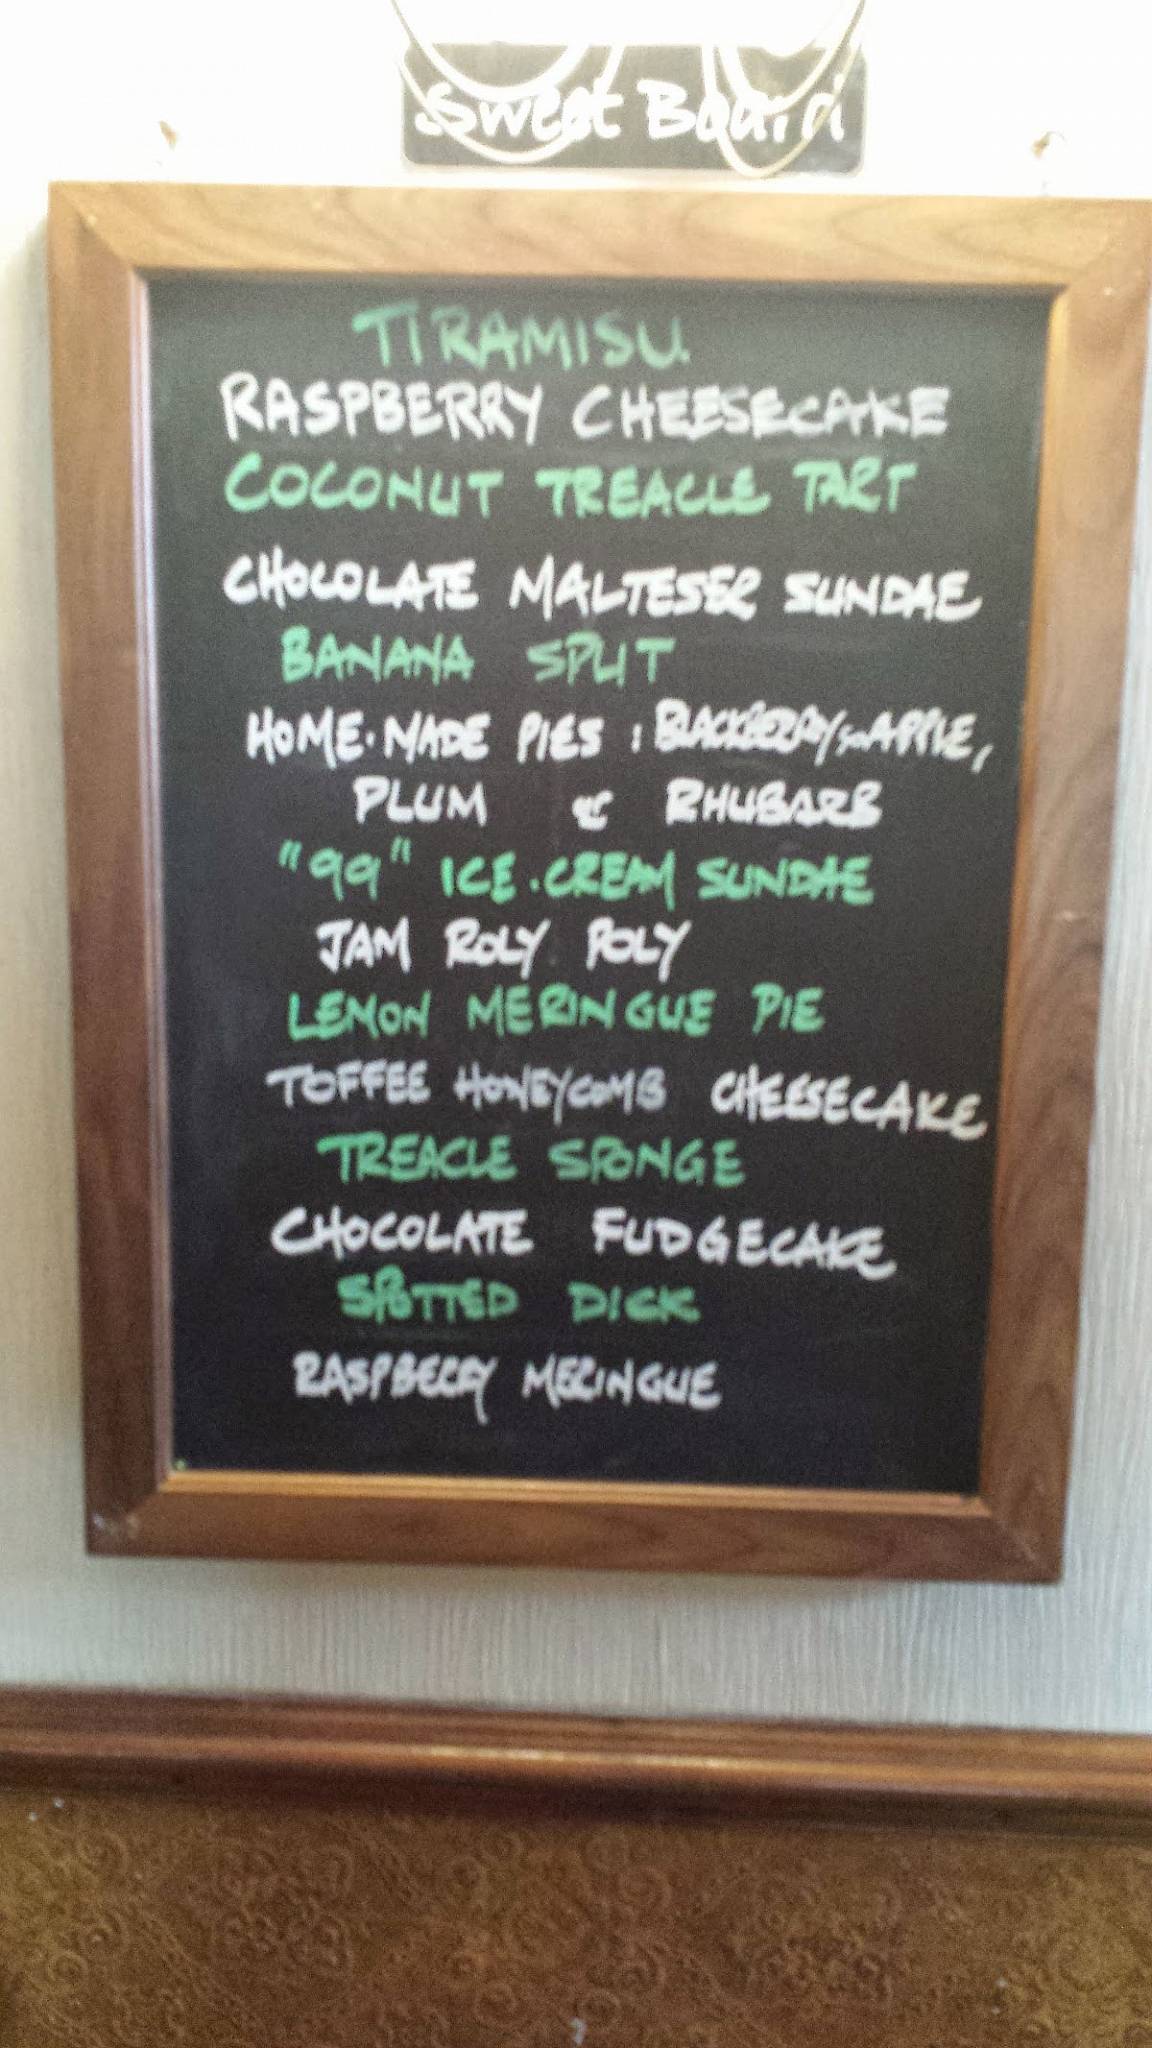 Sweet Board
TIRAMISU.
RASPBERRY CHEESECAKE
COCONUT TREACLE TART
CHOCOLATE MALTESER SUNDAE
BANANA SPLIT
HOME·MADE PIES : BLACKBERRY & APPLE,
PLUM or RHUBARB
"99" ICE·CREAM SUNDAE
JAM ROLY POLY
LEMON MERINGUE PIE
TOFFEE HONEYCOMB CHEESECAKE
TREACLE SPONGE
CHOCOLATE FUDGECAKE
SPOTTED DICK
RASPBERRY MERINGUE